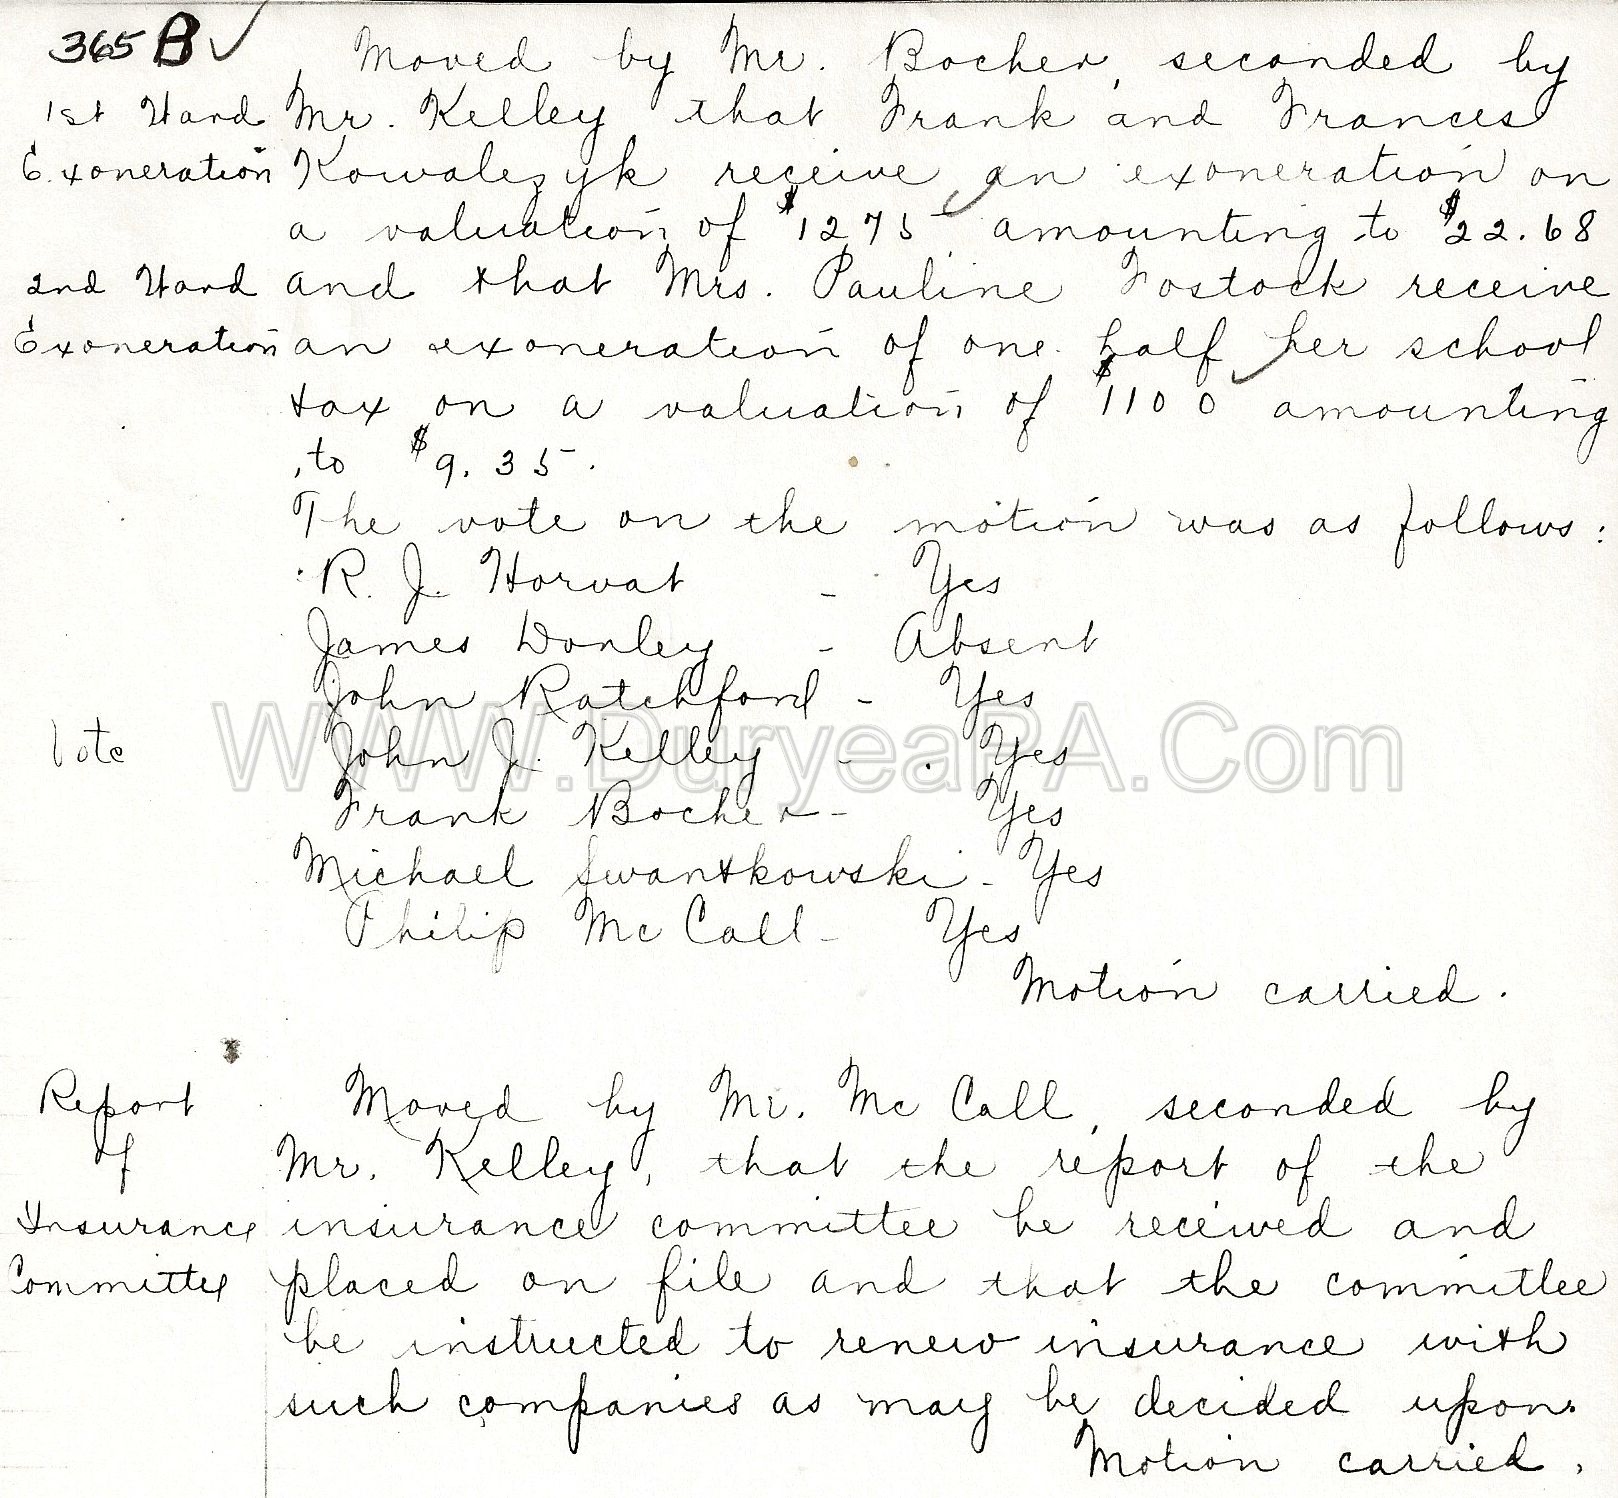 365 B ✓
Moved by Mr. Bocher, seconded by
1st Ward Mr. Kelley that Frank and Frances
Exoneration Kowalczyk receive an exoneration on
a valuation of $1275 amounting to $22.68
2nd Ward and that Mrs. Pauline Fostock receive
Exoneration an exoneration of one half her school
tax on a valuation of $1100 amounting
to $9.35.
The vote on the motion was as follows:
R. J. Horvat - Yes
James Donley - Absent
John Ratchford - Yes
WWW.DuryeaPA.Com
Vote John J. Kelley - Yes
Frank Bocher - Yes
Michael Swantkowski - Yes
Philip McCall - Yes
Motion carried.
Report Moved by Mr. McCall, seconded by
of Mr. Kelley, that the report of the
Insurance insurance committee be received and
Committee placed on file and that the committee
be instructed to renew insurance with
such companies as may be decided upon.
Motion carried.